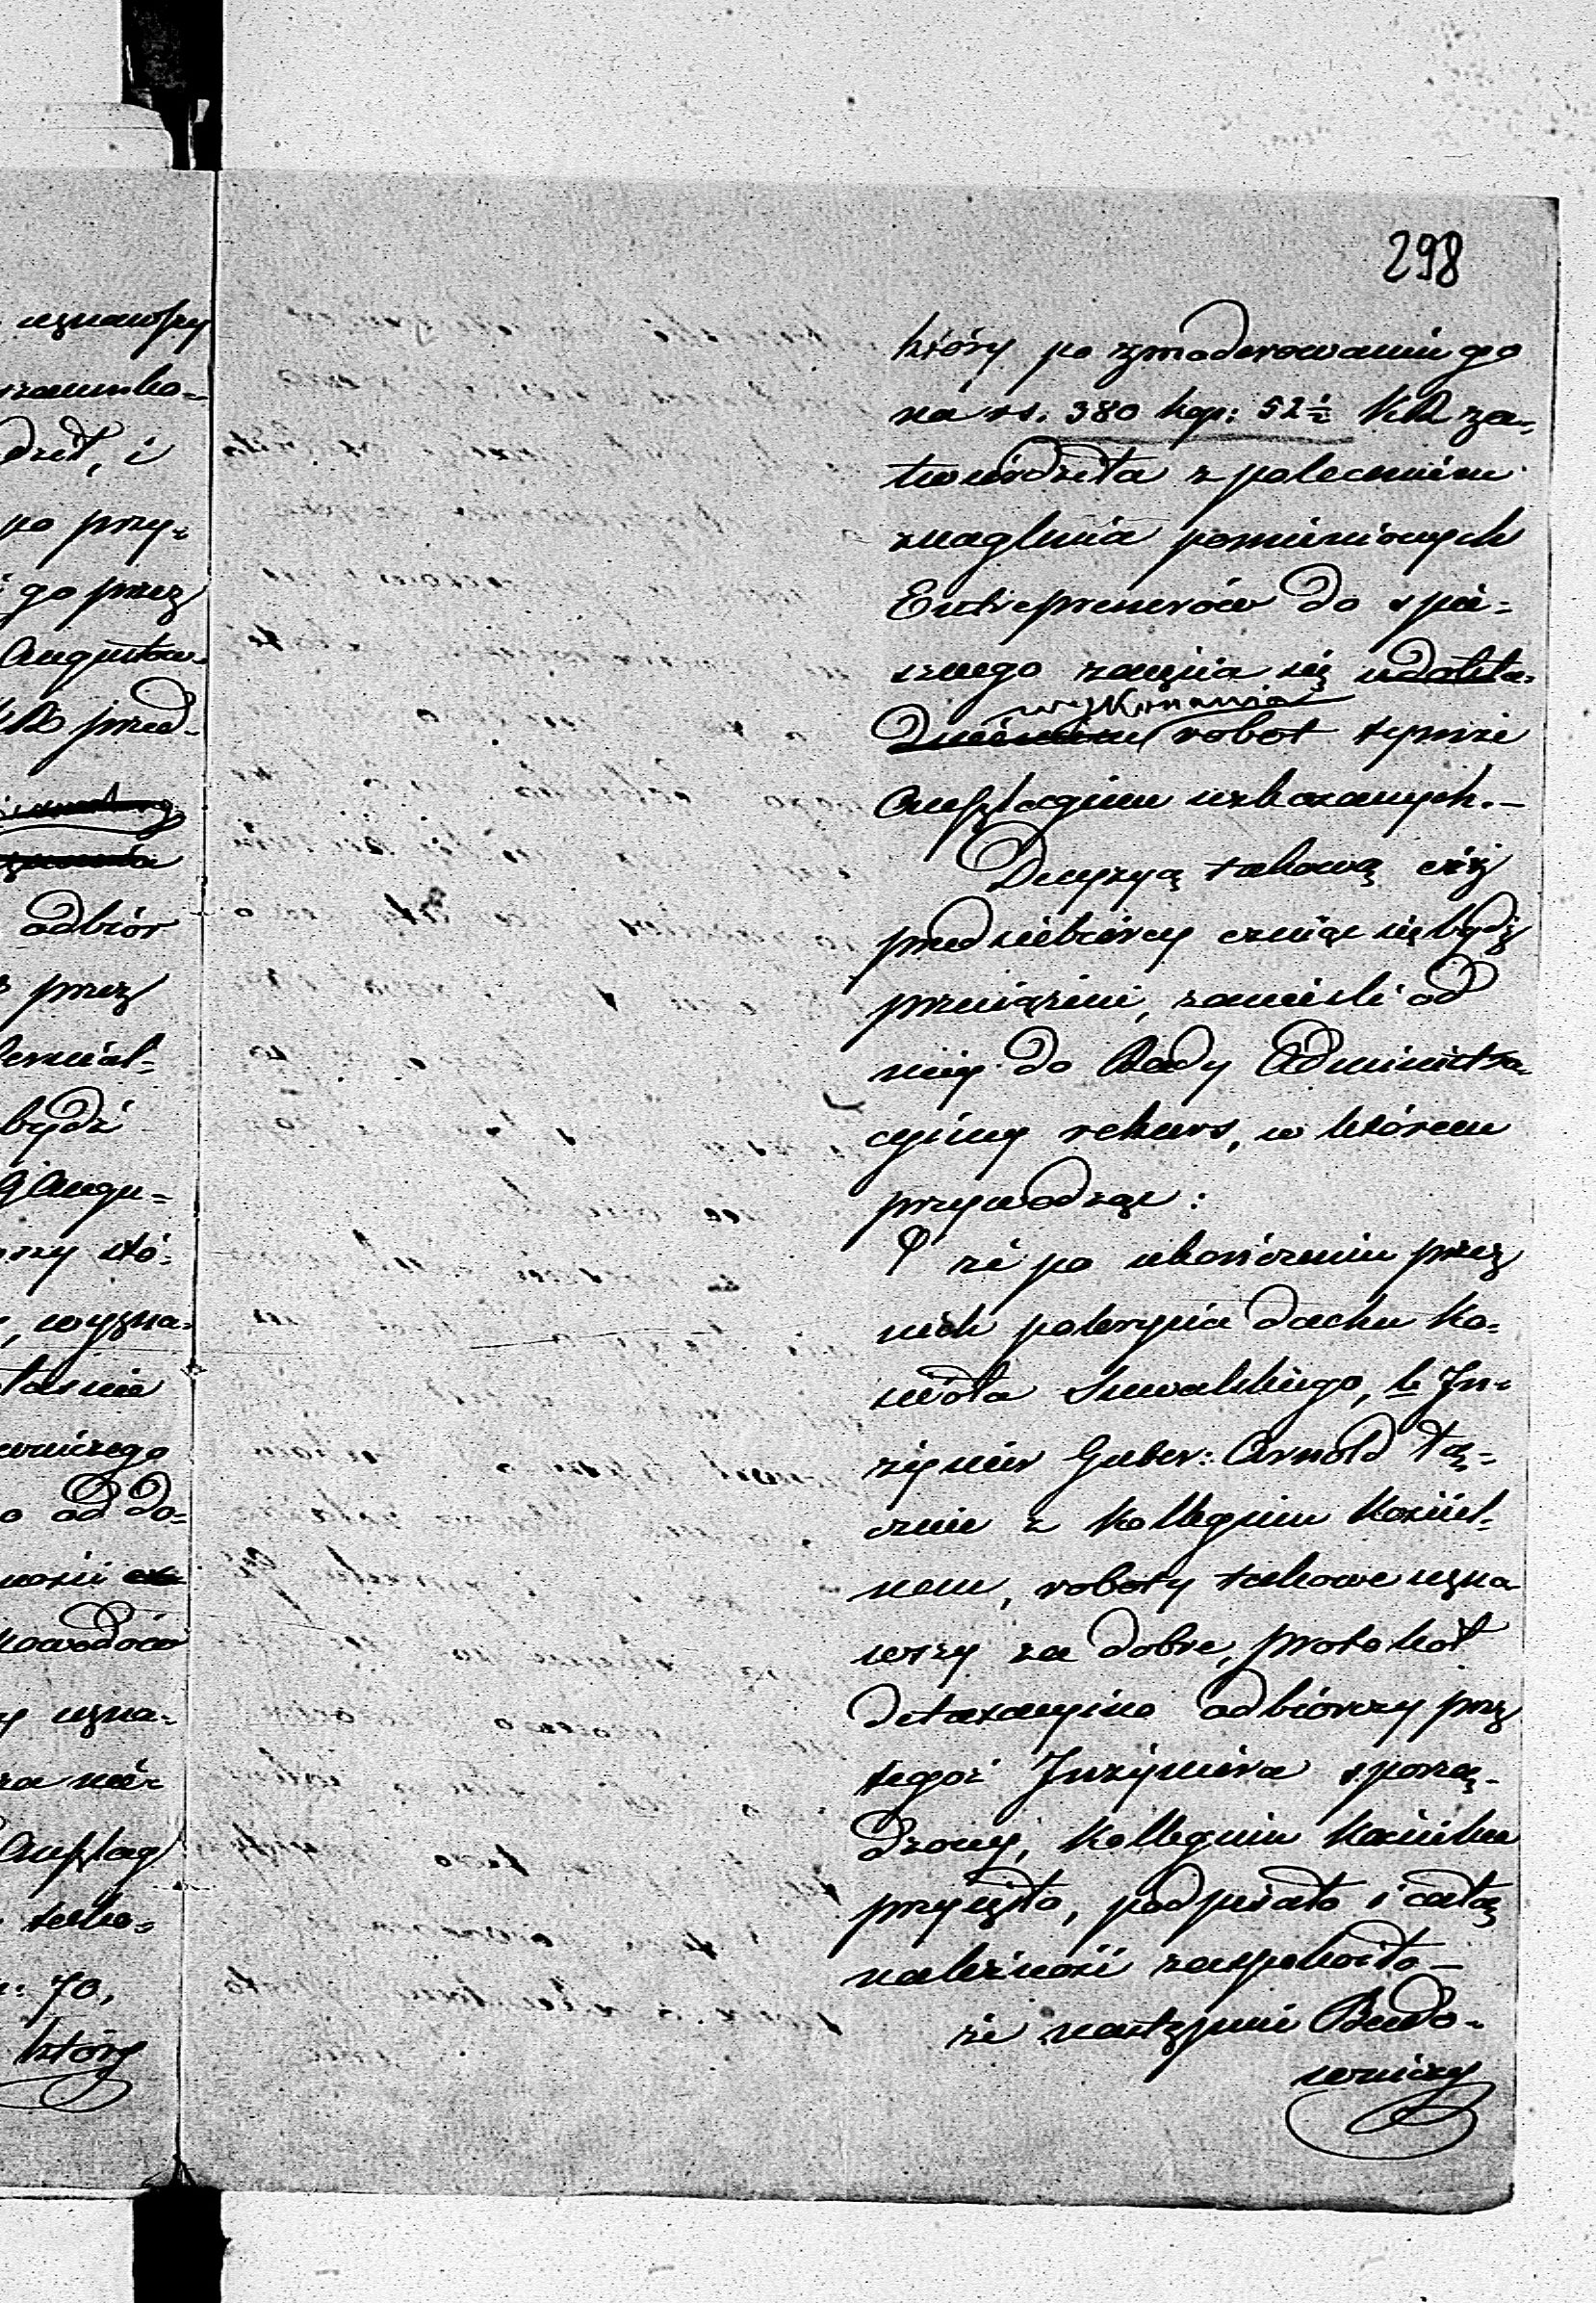 298
który po zmoderowaniu go
na rs. 380 kop: 52½ KRz za-
twierdziła z poleceniem
znaglenia pomienionych
Entreprenerów do spie-
sznego zajęcia się udokła-
dnieniem wykonania robot tymże
Anszlagiem wskazanych.—
Decyzyą takową ciż
przedsiębiorcy czując się bydź
przeciążeni, zanieśli od
niej do Rady Administra-
cyjnej rekurs, w którem
przywodząc:
że po ukończeniu przez
nich pokrycia dachu Ko-
ścioła Suwalskiego, b. In-
żynier Guber: Arnold łą-
cznie z Kollegium Kościel-
nem, roboty takowe uzna
wszy za dobre, protokół
detaxacyjno odbiorczy przez
tegoż Inżyniera sporzą-
dzony, Kollegium Kościelne
przyjęło, podpisało i całą
należność zaspokoiło —
że następnie Budo-
wniczy
uznawszy
dził, i
po przy-
go przez
Augustow-
przed-
odbiór
przez
bydź
Augu-
wyzna-
wniczego
od do-
uzna-
za nie-
Anszlag
tako-
70,
który